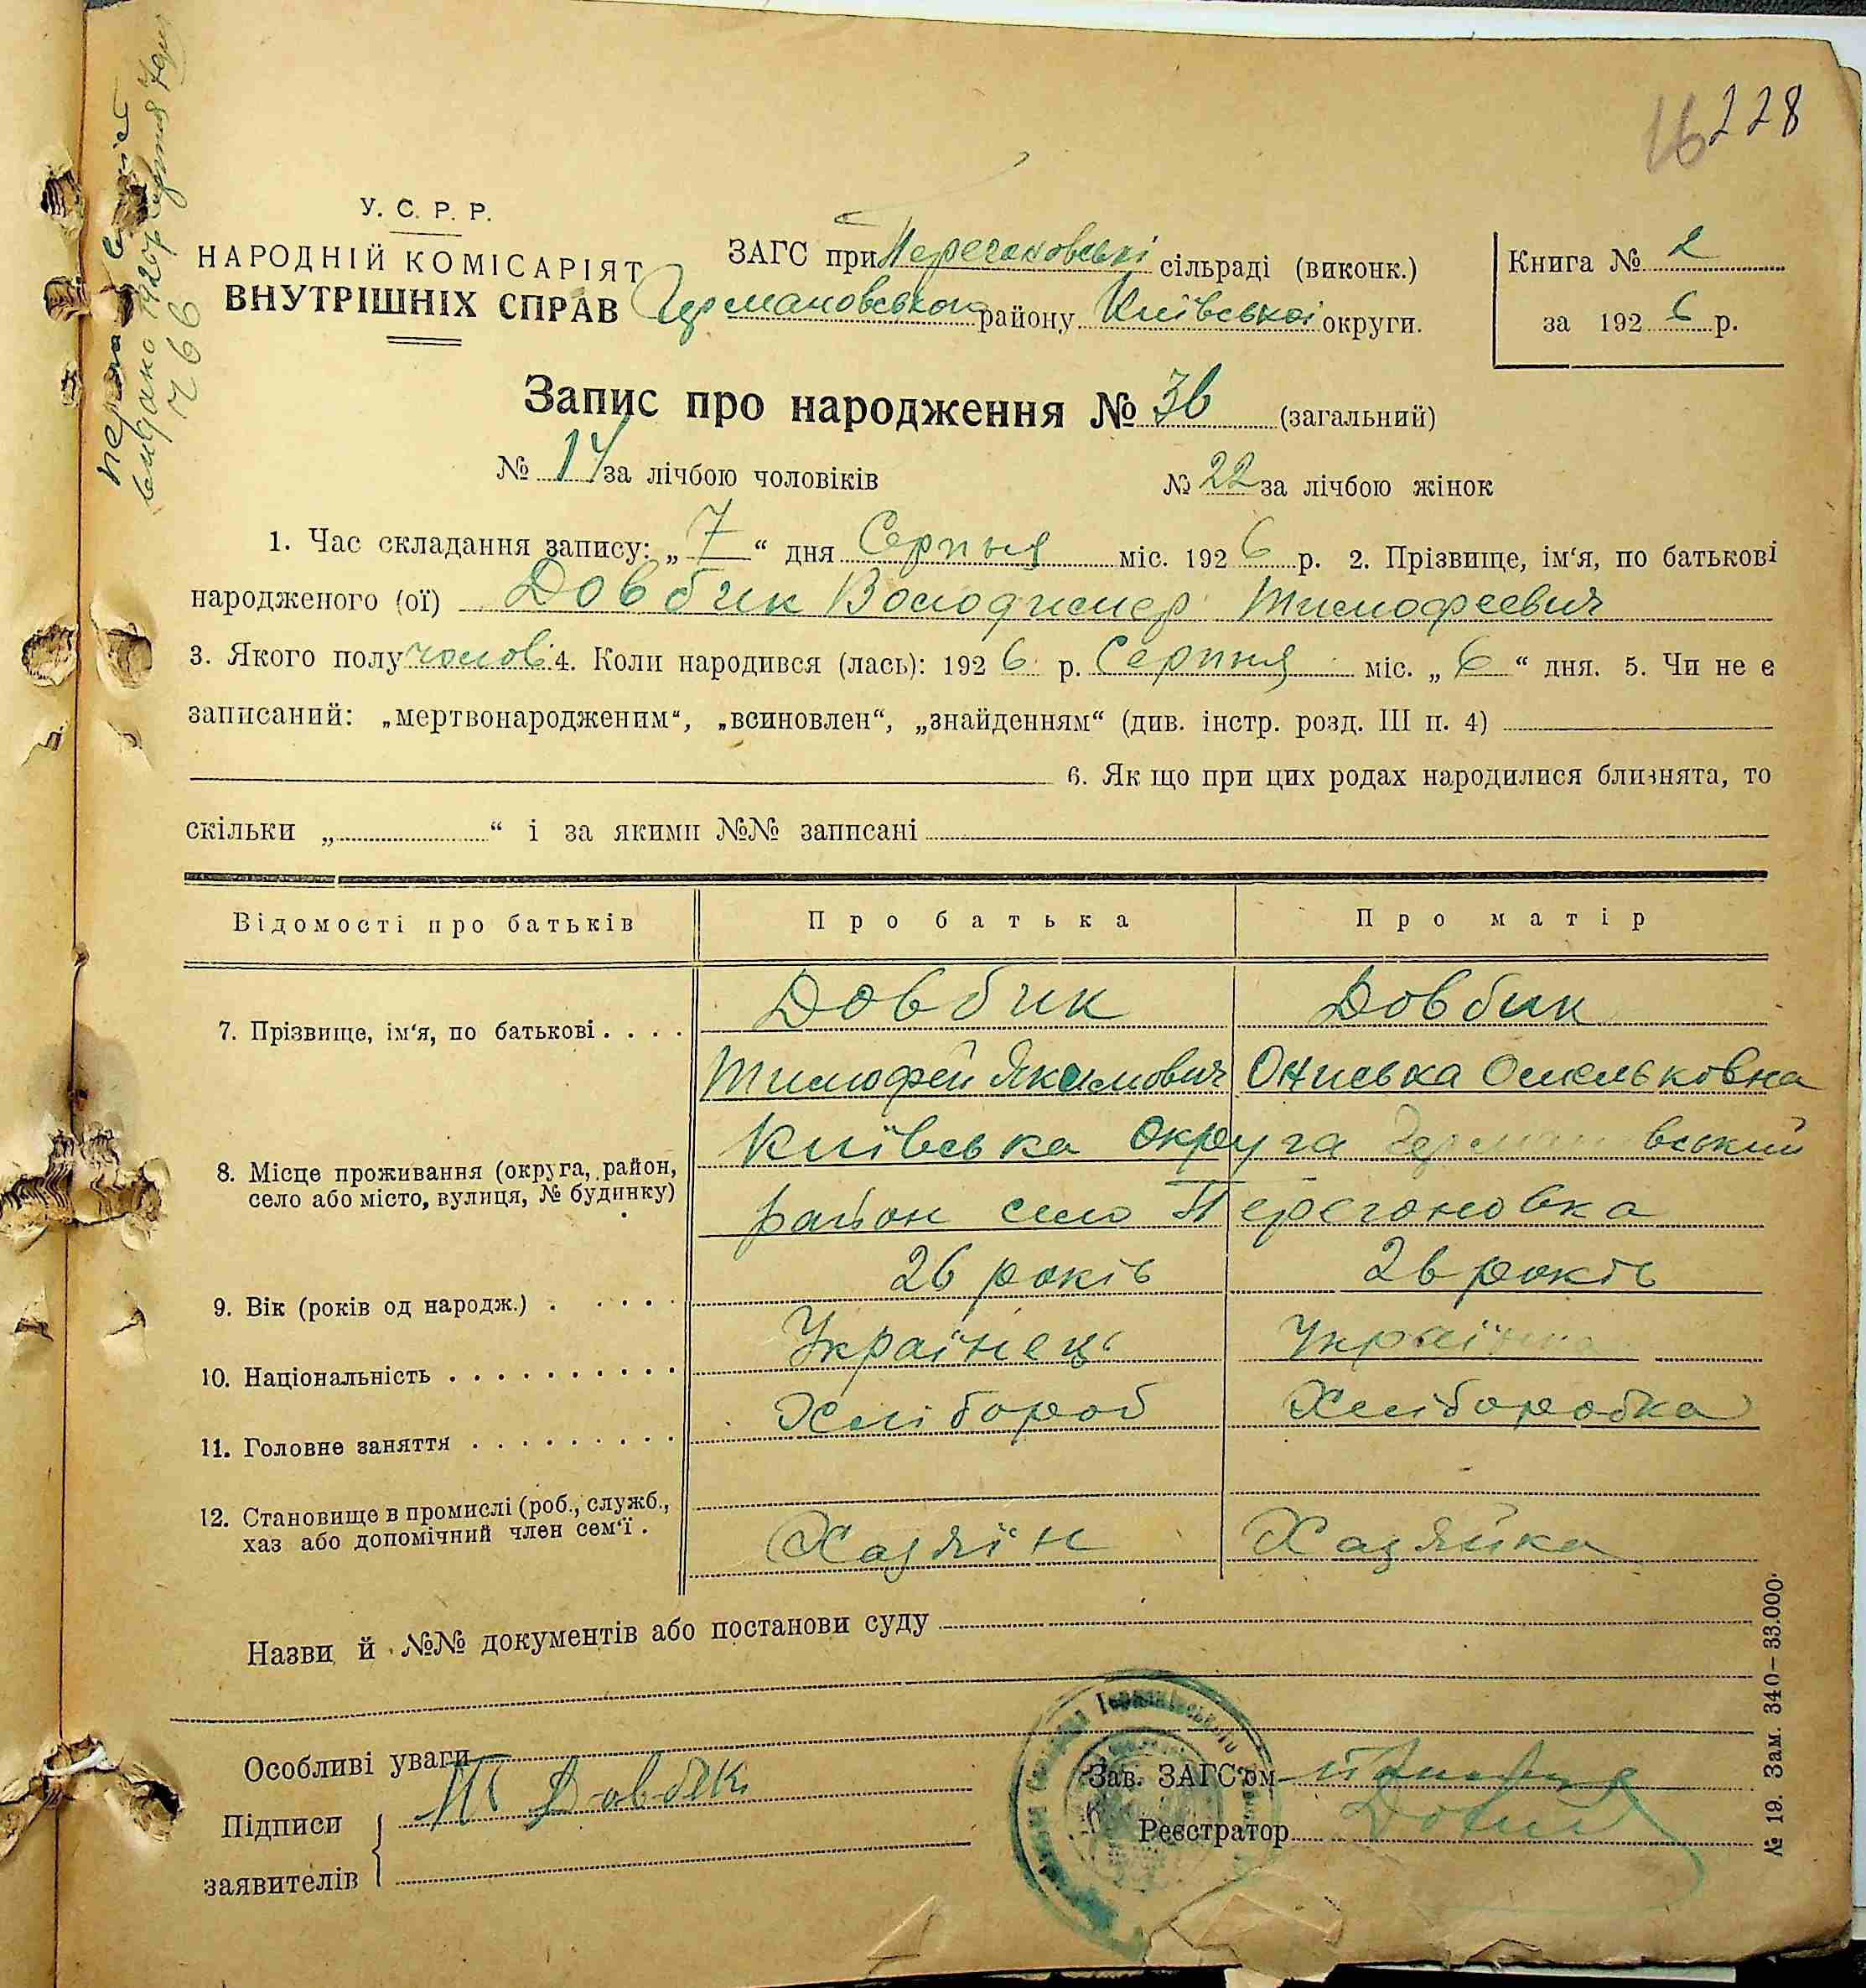 16 228
У. С. Р. Р.
НАРОДНІЙ КОМІСАРІЯТ
ВНУТРІШНІХ СПРАВ
ЗАГС при Перегоновські сільраді (виконк.)
Германовськог району Київської округи.
Книга № 2
за 1926 р.
Запис про народження № 36 (загальний)
№ 14 за лічбою чоловіків № 22 за лічбою жінок
1. Час складання запису: „7“ дня Серпня міс. 1926 р. 2. Прізвище, ім‘я, по батькові
народженого (ої) Довбик Володимер Тимофеевич
3. Якого полу чолові 4. Коли народився (лась): 1926 р. Серпня міс. „6“ дня. 5. Чи не є
записаний: „мертвонародженим“, „всиновлен“, „знайденням“ (див. інстр. розд. III п. 4)
6. Як що при цих родах народилися близнята, то
скільки „ “ і за якими №№ записані
Відомості про батьків Про батька Про матір
7. Прізвище, ім‘я, по батькові . . . . Довбик Довбик
Тимофей Якимович Ониська Омельковна
Київська округа Германовський
8. Місце проживання (округа, район,
село або місто, вулиця, № будинку)
район село Перегоновка
9. Вік (років од народж.) . . . . . 26 років 26 років
10. Національність . . . . . . . . . . Українець Українка
11. Головне заняття . . . . . . . . . Хлібороб Хлiборобка
12. Становище в промислі (роб., служб.,
хаз або допомічний член сем‘ї . Хазяїн Хазяйка
Назви й №№ документів або постанови суду
Особливі уваги
Підписи Т Довбик
заявителів
Зав. ЗАГС‘ом
Реєстратор
№ 19. Зам. 340–33.000.